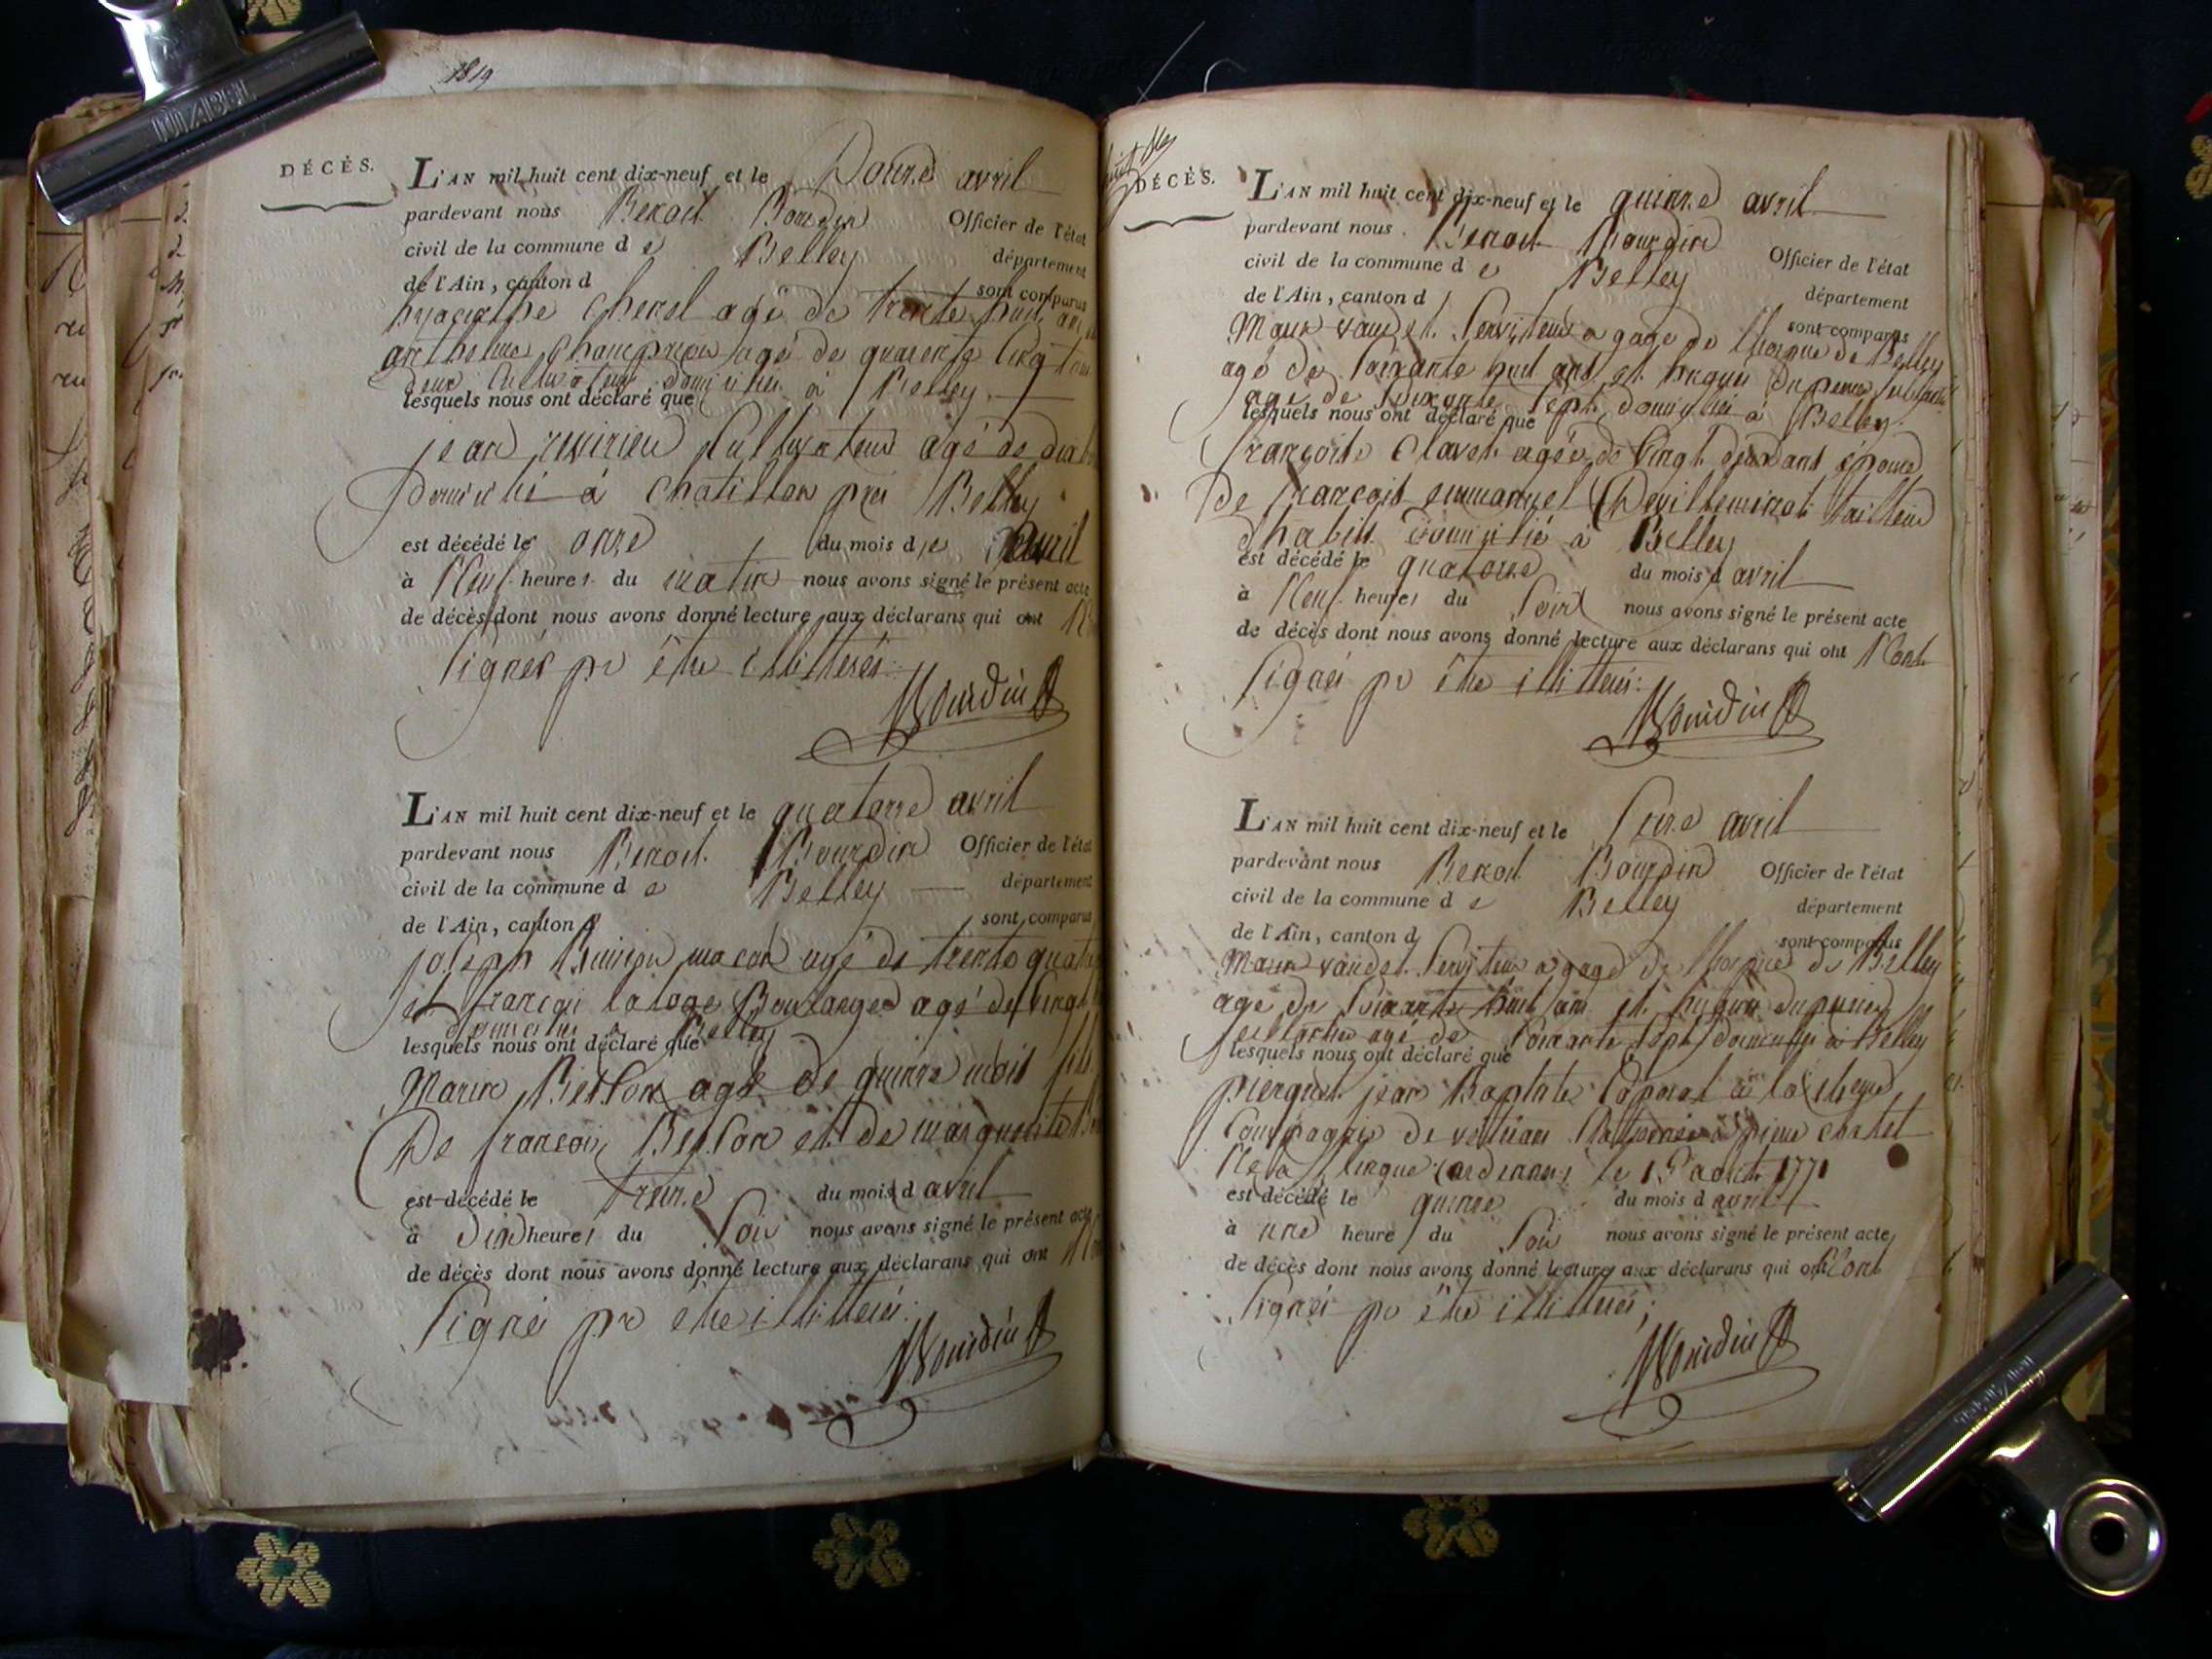 1819
DÉCÈS.
L'AN mil huit cent dix-neuf et le Douze avril
pardevant nous Benoit Bourdin Officier de l'état
civil de la commune de Belley département
de l'Ain, canton d sont comparus
hyacinthe Chenel agé de trente huit ans
anthelme Champion agé de quarente cinq
deux Cultivateurs domiciliés à Belley
lesquels nous ont déclaré que
jean revirieu Cultivateur agé de
Domicilié à Chatillon près Belley
est décédé le onze du mois de avril
à Neuf heures du matin nous avons signé le présent acte
de décès dont nous avons donné lecture aux déclarans qui ont
Signés pr être illitterés
Bourdin
L'AN mil huit cent dix-neuf et le quatorze avril
pardevant nous Benoit Bourdin Officier de l'état
civil de la commune de Belley département
de l'Ain, canton d sont comparus
joseph maçon agé de trente quatre
et françois Boulanger agé de vingt
domiciliés à Belley
lesquels nous ont déclaré que
Marin Besson agé de quinze mois fils
De françois Besson et de marguerite
est décédé le treize du mois d avril
à dix heures du Soir nous avons signé le présent acte
de décès dont nous avons donné lecture aux déclarans qui ont
Signés pr être illitterés
Bourdin
DÉCÈS.
L'AN mil huit cent dix-neuf et le quinze avril
pardevant nous Benoit Bourdin Officier de l'état
civil de la commune de Belley département
de l'Ain, canton d sont comparus
Maur vaudet Serviteur a gage de lhospice de Belley
agé de Soixante huit ans et hugues
agé de Soixante Sept domiciliés à Belley
lesquels nous ont déclaré que
françoise Clavet agée de vingt deux ans épouse
De françois emmanuel Devilleminot tailleur
dhabits domicilié à Belley
est décédé le quatorze du mois d avril
à Neuf heures du Soir nous avons signé le présent acte
de décès dont nous avons donné lecture aux déclarans qui ont Nont
Signés pr être illitterés
Bourdin
L'AN mil huit cent dix-neuf et le Seize avril
pardevant nous Benoit Bourdin Officier de l'état
civil de la commune de Belley département
de l'Ain, canton d sont comparus
Maur vaudet Serviteur a gage de lhospice de Belley
agé de Soixante huit ans et hugues
agé de Soixante Sept domiciliés à Belley
lesquels nous ont déclaré que
pierquet jean Baptiste Caporal à la
Compagnie de vétérans
Né à (ardennes) le 15 aout 1771
est décédé le quinze du mois d avril
à une heure du Soir nous avons signé le présent acte
de décès dont nous avons donné lecture aux déclarans qui ont Nont
Signés pr être illitterés;
Bourdin